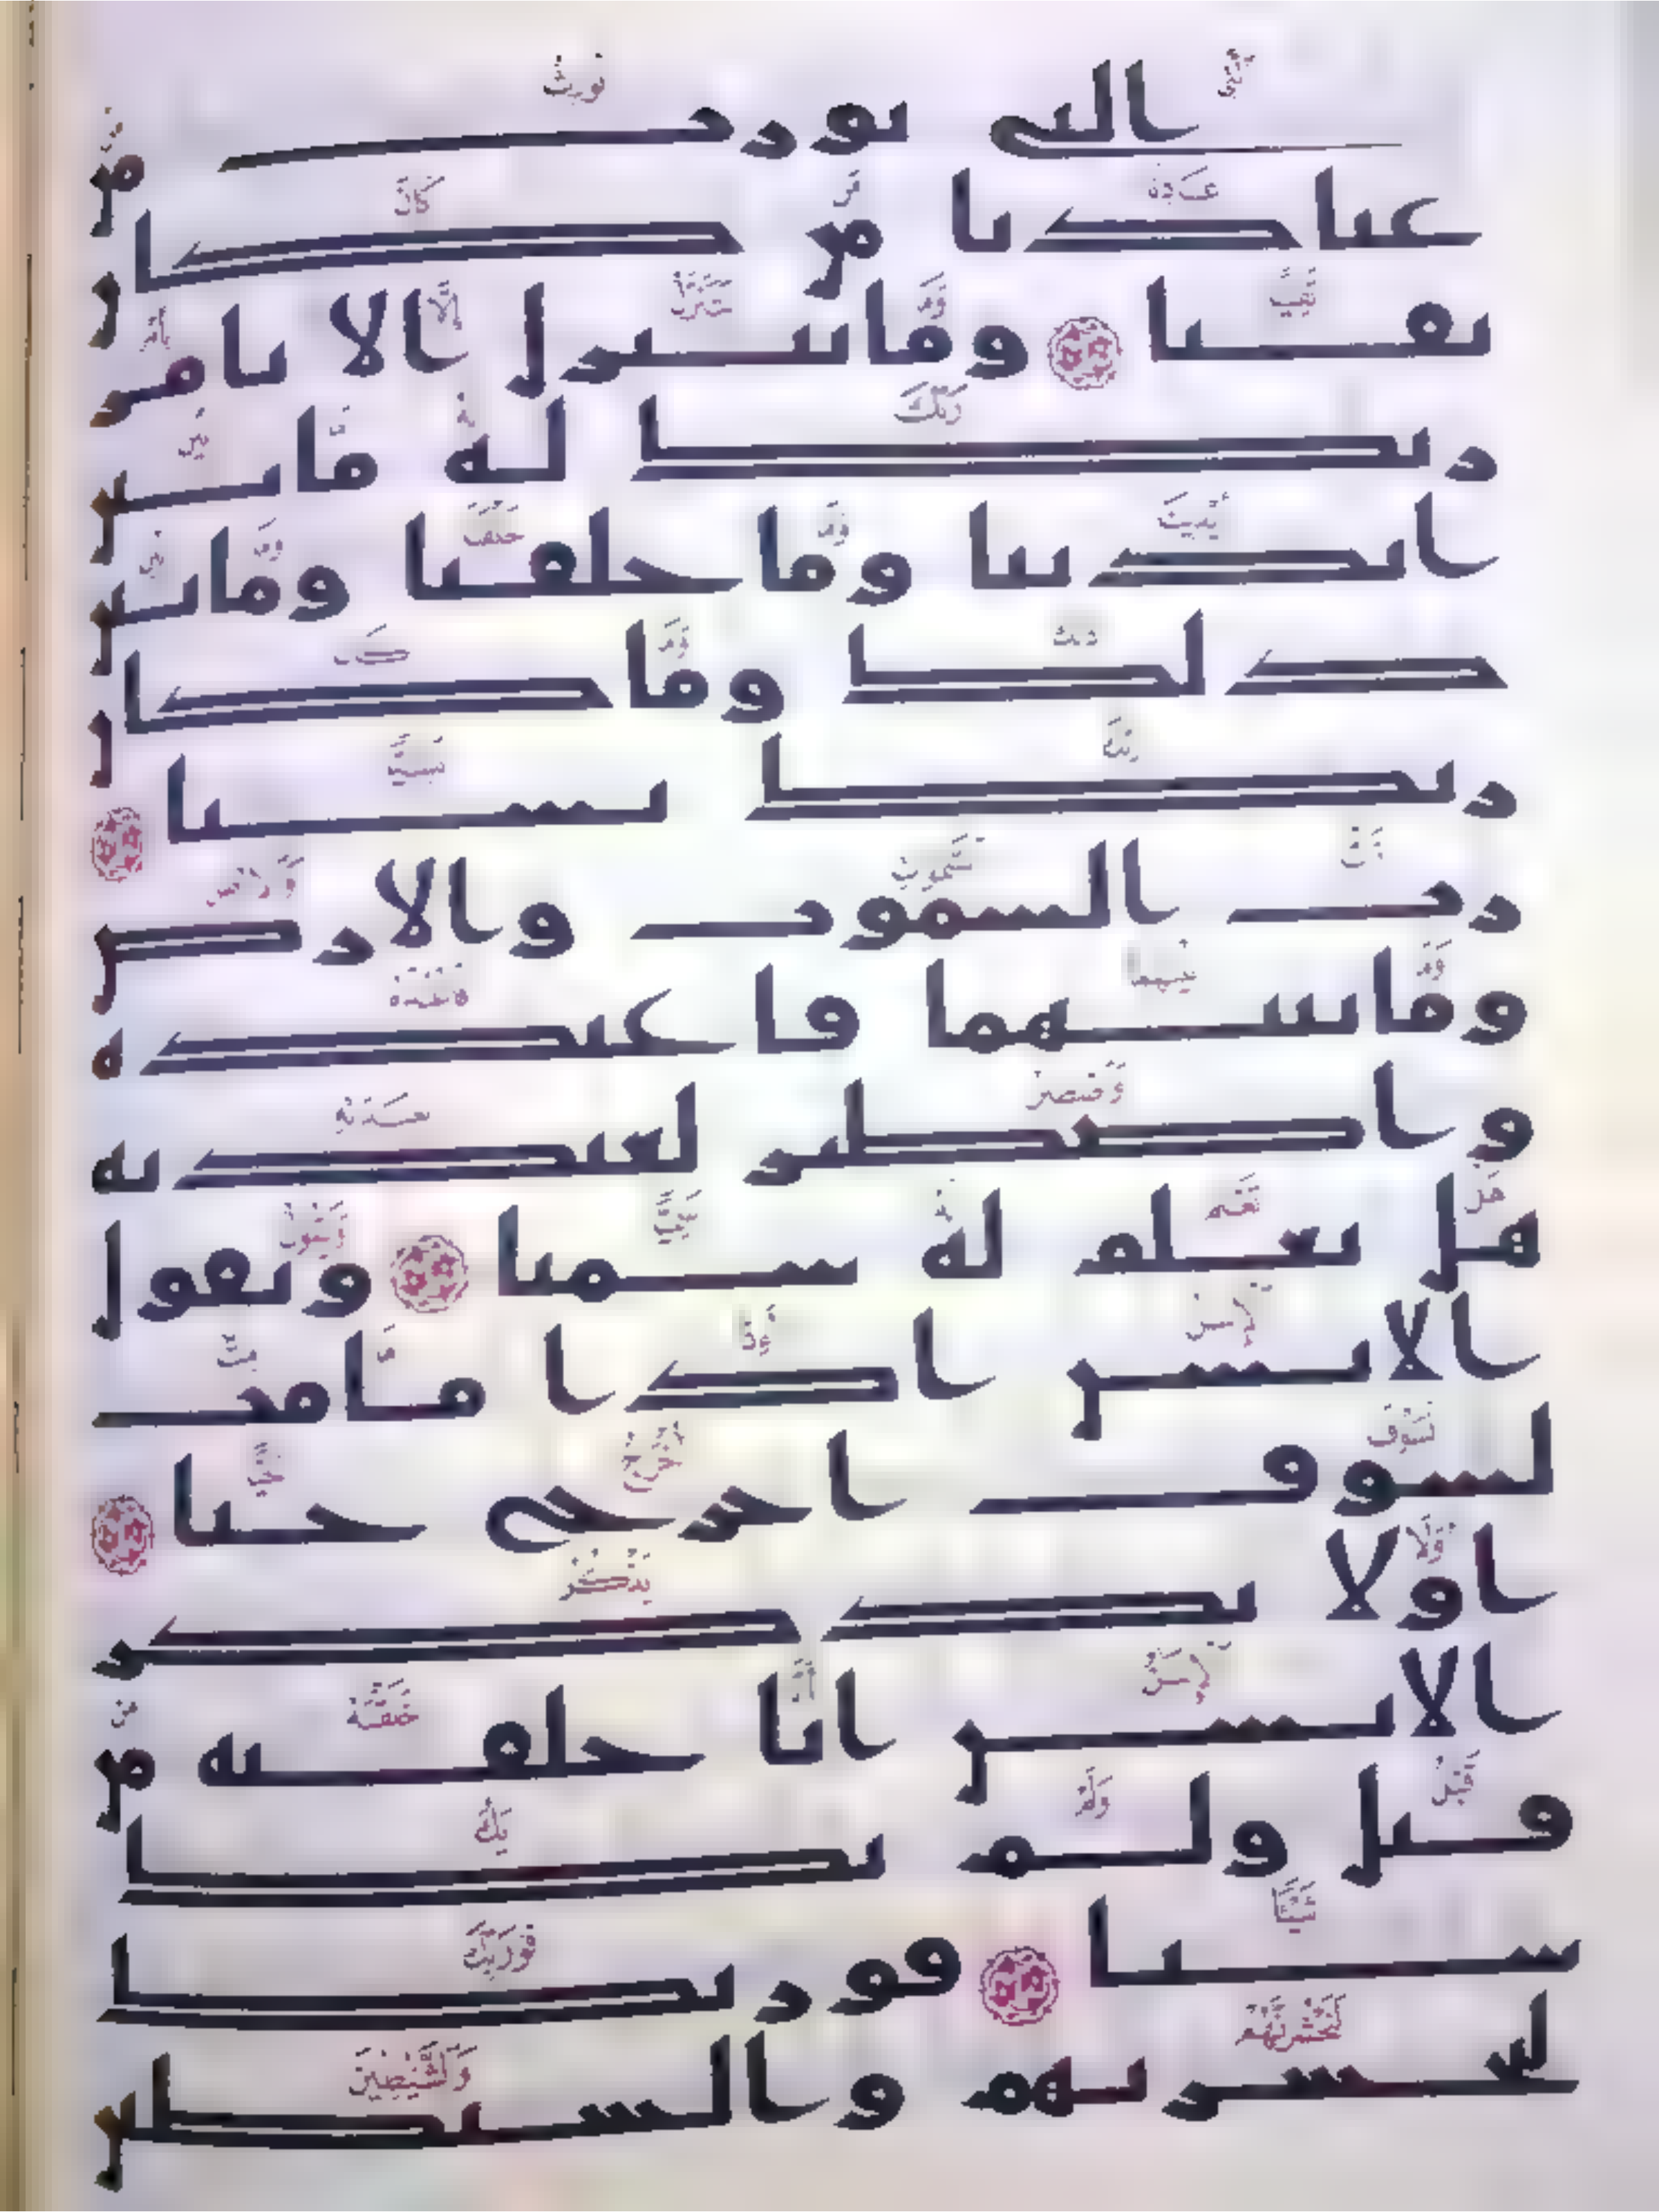 التي نورث من
عبادنا من كان
تقيا وما نتنزل الا بامر
ربك له ما بين
ايدينا وما خلفنا وما بين
ذلك وما كان
ربك نسيا
رب السموت والارض
وما بينهما فاعبده
واصطبر لعبدته
هل تعلم له سميا ويقول
الانسن اذا ما مت
لسوف اخرج حيا
اولا يذكر
الانسن انا خلقنه من
قبل ولم يك
شيا فوربك
لنحشرنهم والشيطين